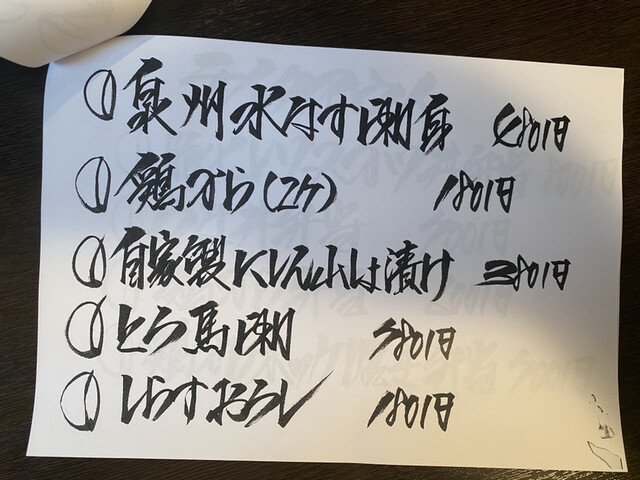 ① 泉州水なす刺身 480円
① 鶏から(2ケ) 180円
① 自家製にしん山は漬け 380円
① とろ馬刺 580円
① しらすおろし 180円